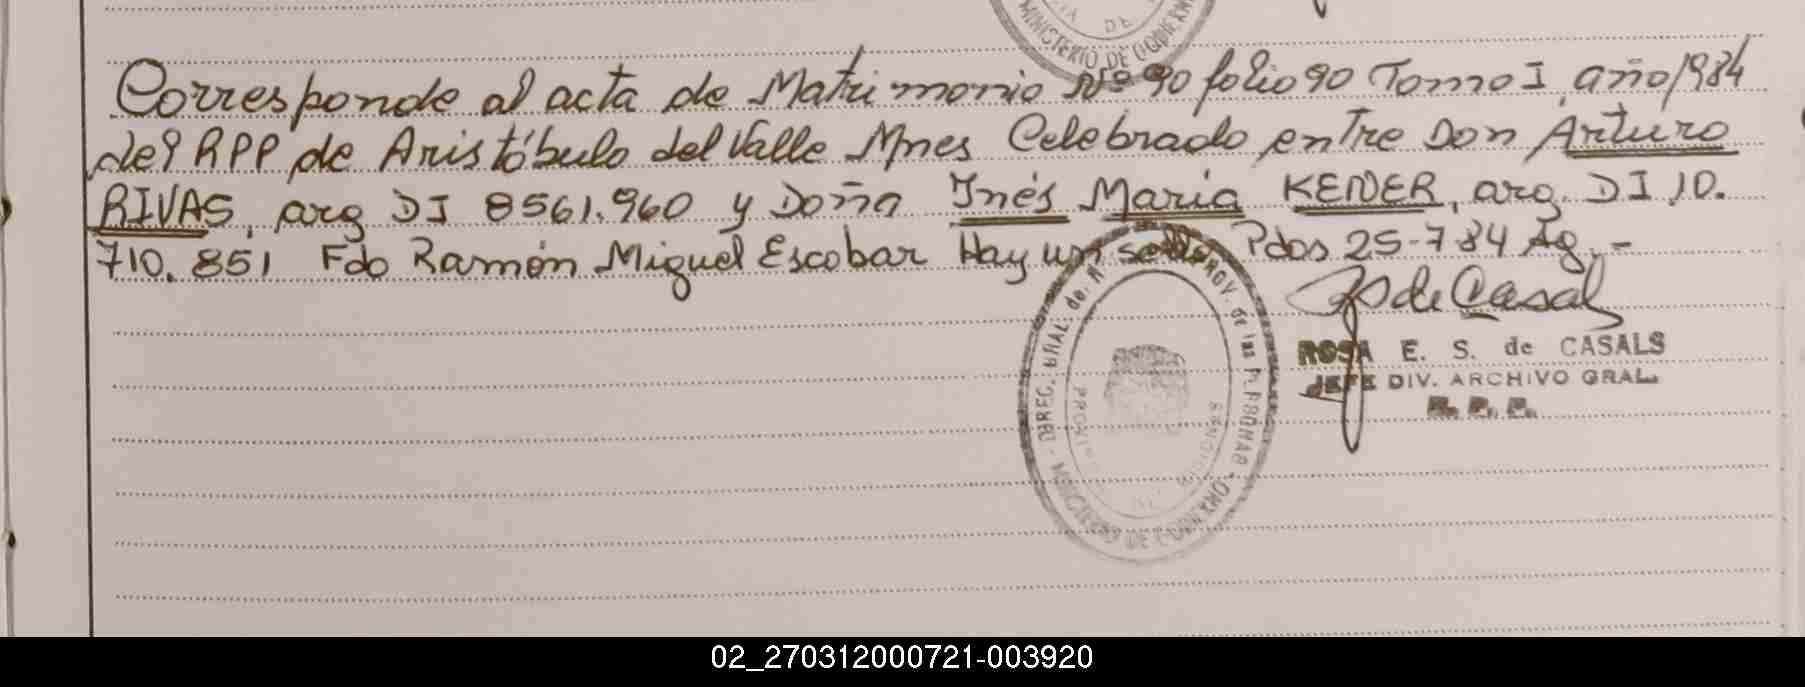 MINISTERIO DE GOBIERNO
Corresponde al acta de Matrimonio Nº 90 folio 90 Tomo I, año 1984
del RPP de Aristóbulo del Valle Mnes Celebrado entre Don Arturo
RIVAS, arg DI 8561.960 y Doña Inés María KENER, arg. DI 10.
710.851 Fdo Ramón Miguel Escobar Hay un sello Pdos 25-7 84 Ag.-
de Casals
ROSA E. S. de CASALS
JEFE DIV. ARCHIVO GRAL.
R. P. P.
DIREC. GRAL. de. PROV. de las PERSONAS - MINISTERIO DE GOBIERNO -
PROVINCIA DE MISIONES
02_270312000721-003920